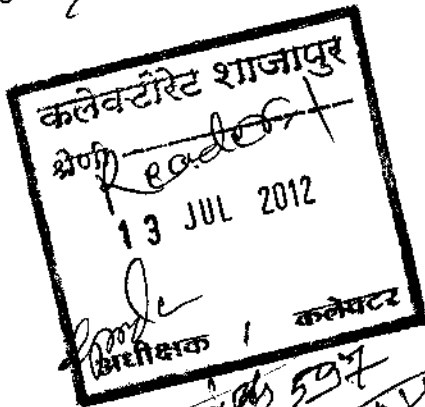 कलेक्टोरेट शाजापुर
श्रेणी Reader 1
13 JUL 2012
अधीक्षक / कलेक्टर
597